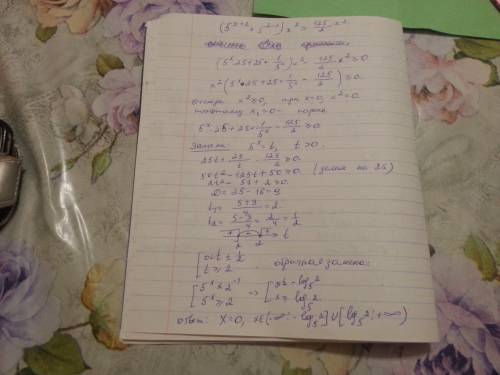 (5^{x+2} + 5^{2-x}) x² ≥ 125/2 x².
(5^x·25 + 25·1/5^x) x² - 125/2 x² ≥ 0
x² (5^x·25 + 25·1/5^x - 125/2) ≥ 0.
x² ≥ 0, при x=0, x² = 0.
поэтому x₁ = 0 -
5^x·25 + 25·1/5^x - 125/2 ≥ 0.
Замена: 5^x = t, t > 0.
25t + 25/t - 125/2 ≥ 0.
50t² - 125t + 50 ≥ 0. (делим на 25)
2t² - 5t + 2 ≥ 0.
D = 25 - 16 = 9
t₁ = (5+3)/4 = 2
t₂ = (5-3)/4 = 2/4 = 1/2
+ - + t
1/2 2
[ 0 < t ≤ 1/2
[ t ≥ 2. обратная замена:
[ 5^x ≤ 2^{-1} => [ x ≤ -log₅2
[ 5^x ≥ 2 [ x ≥ log₅2
ответ: x=0, x∈(-∞; -log₅2] ∪ [log₅2; +∞)